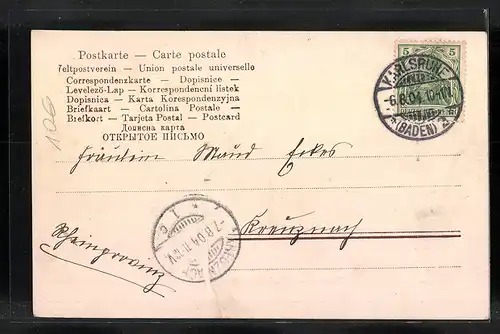 Postkarte — Carte postale
Weltpostverein — Union postale universelle
Correspondenzkarte — Dopisnice -
Levelező-Lap — Korrespondenční lístek
Dopisnica — Karta Korespondenzyjna
Briefkaart — Cartolina Postale —
Brefkort — Tarjeta Postal — Postcard
Дописна карта
ОТКРЫТОЕ ПИСЬМО
5 5
KARLSRUHE
-6.8.04.
*(BADEN) 2
106
Fräulein Maud Eckes
Kreuznach
Rheinprovinz
KREUZNACH
-7.8.04.
* 1 c